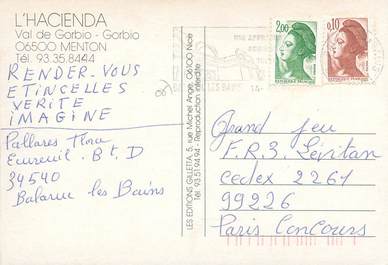 L'HACIENDA
Val de Gorbio - Gorbio
06500 MENTON
Tél. 93.35.84.44
RENDER-VOUS
ETINCELLES
VERITE
IMAGINE
Pallares Flora
Ecureuil. Bt. D
34540
Balaruc les Bains
LES EDITIONS GILLETTA, 5, rue Michel Ange, 06100 Nice
Tél. 93.51.94.94 - Reproduction interdite
LES BAINS
14-
2,00
0,10
Grand jeu
F.R.3. Lépitan
cedex 2261
99226
Paris Concours